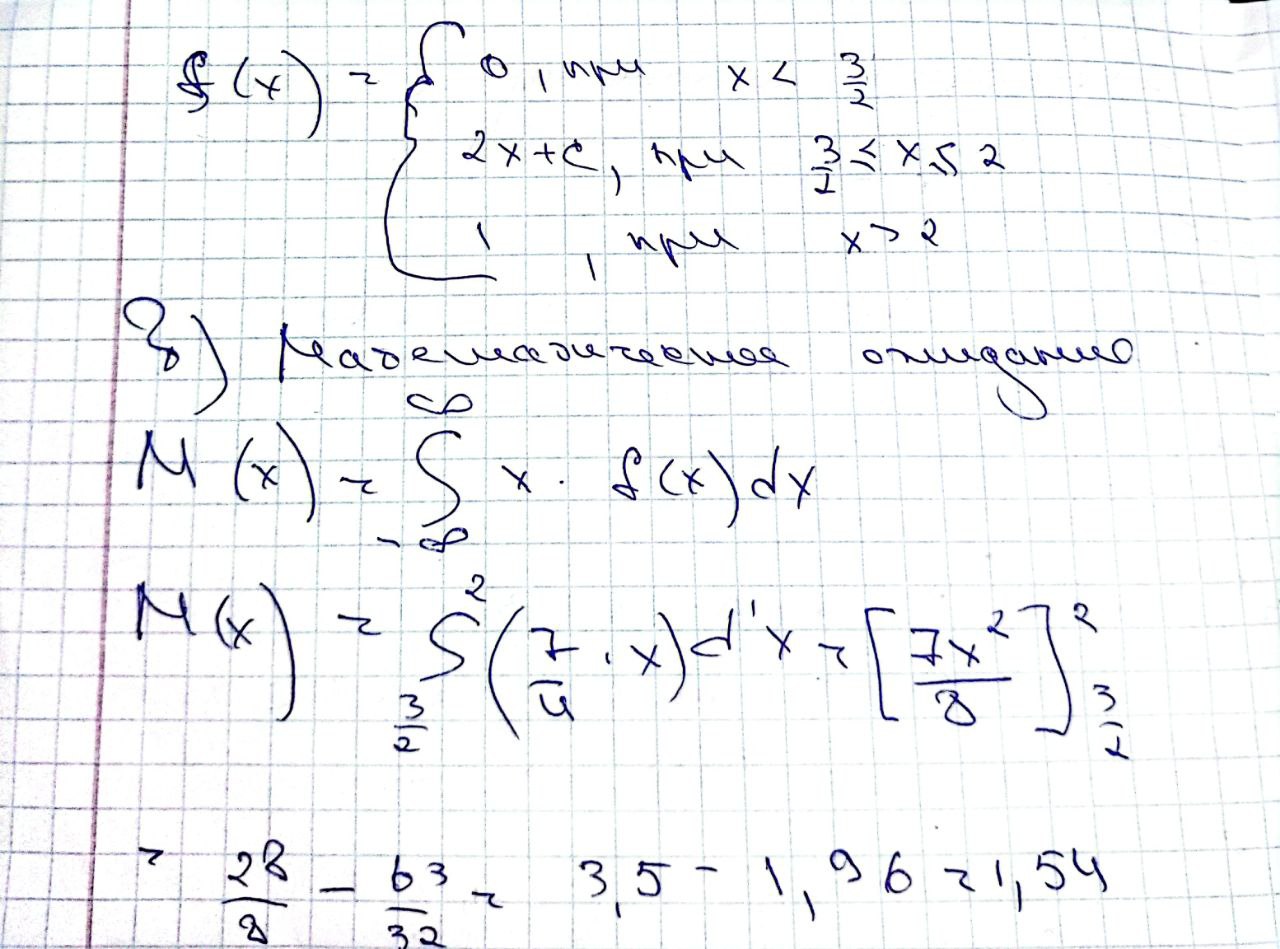 f(x) = { 0, при x < 3/2
2x+c, при 3/2 ≤ x ≤ 2
1, при x > 2
3) Математическое ожидание
M(x) = ∫_{-∞}^{∞} x · f(x) dx
M(x) = ∫_{3/2}^{2} (7/4 · x) dx = [7x²/8]_{3/2}^{2}
= 28/8 - 63/32 = 3,5 - 1,96 = 1,54